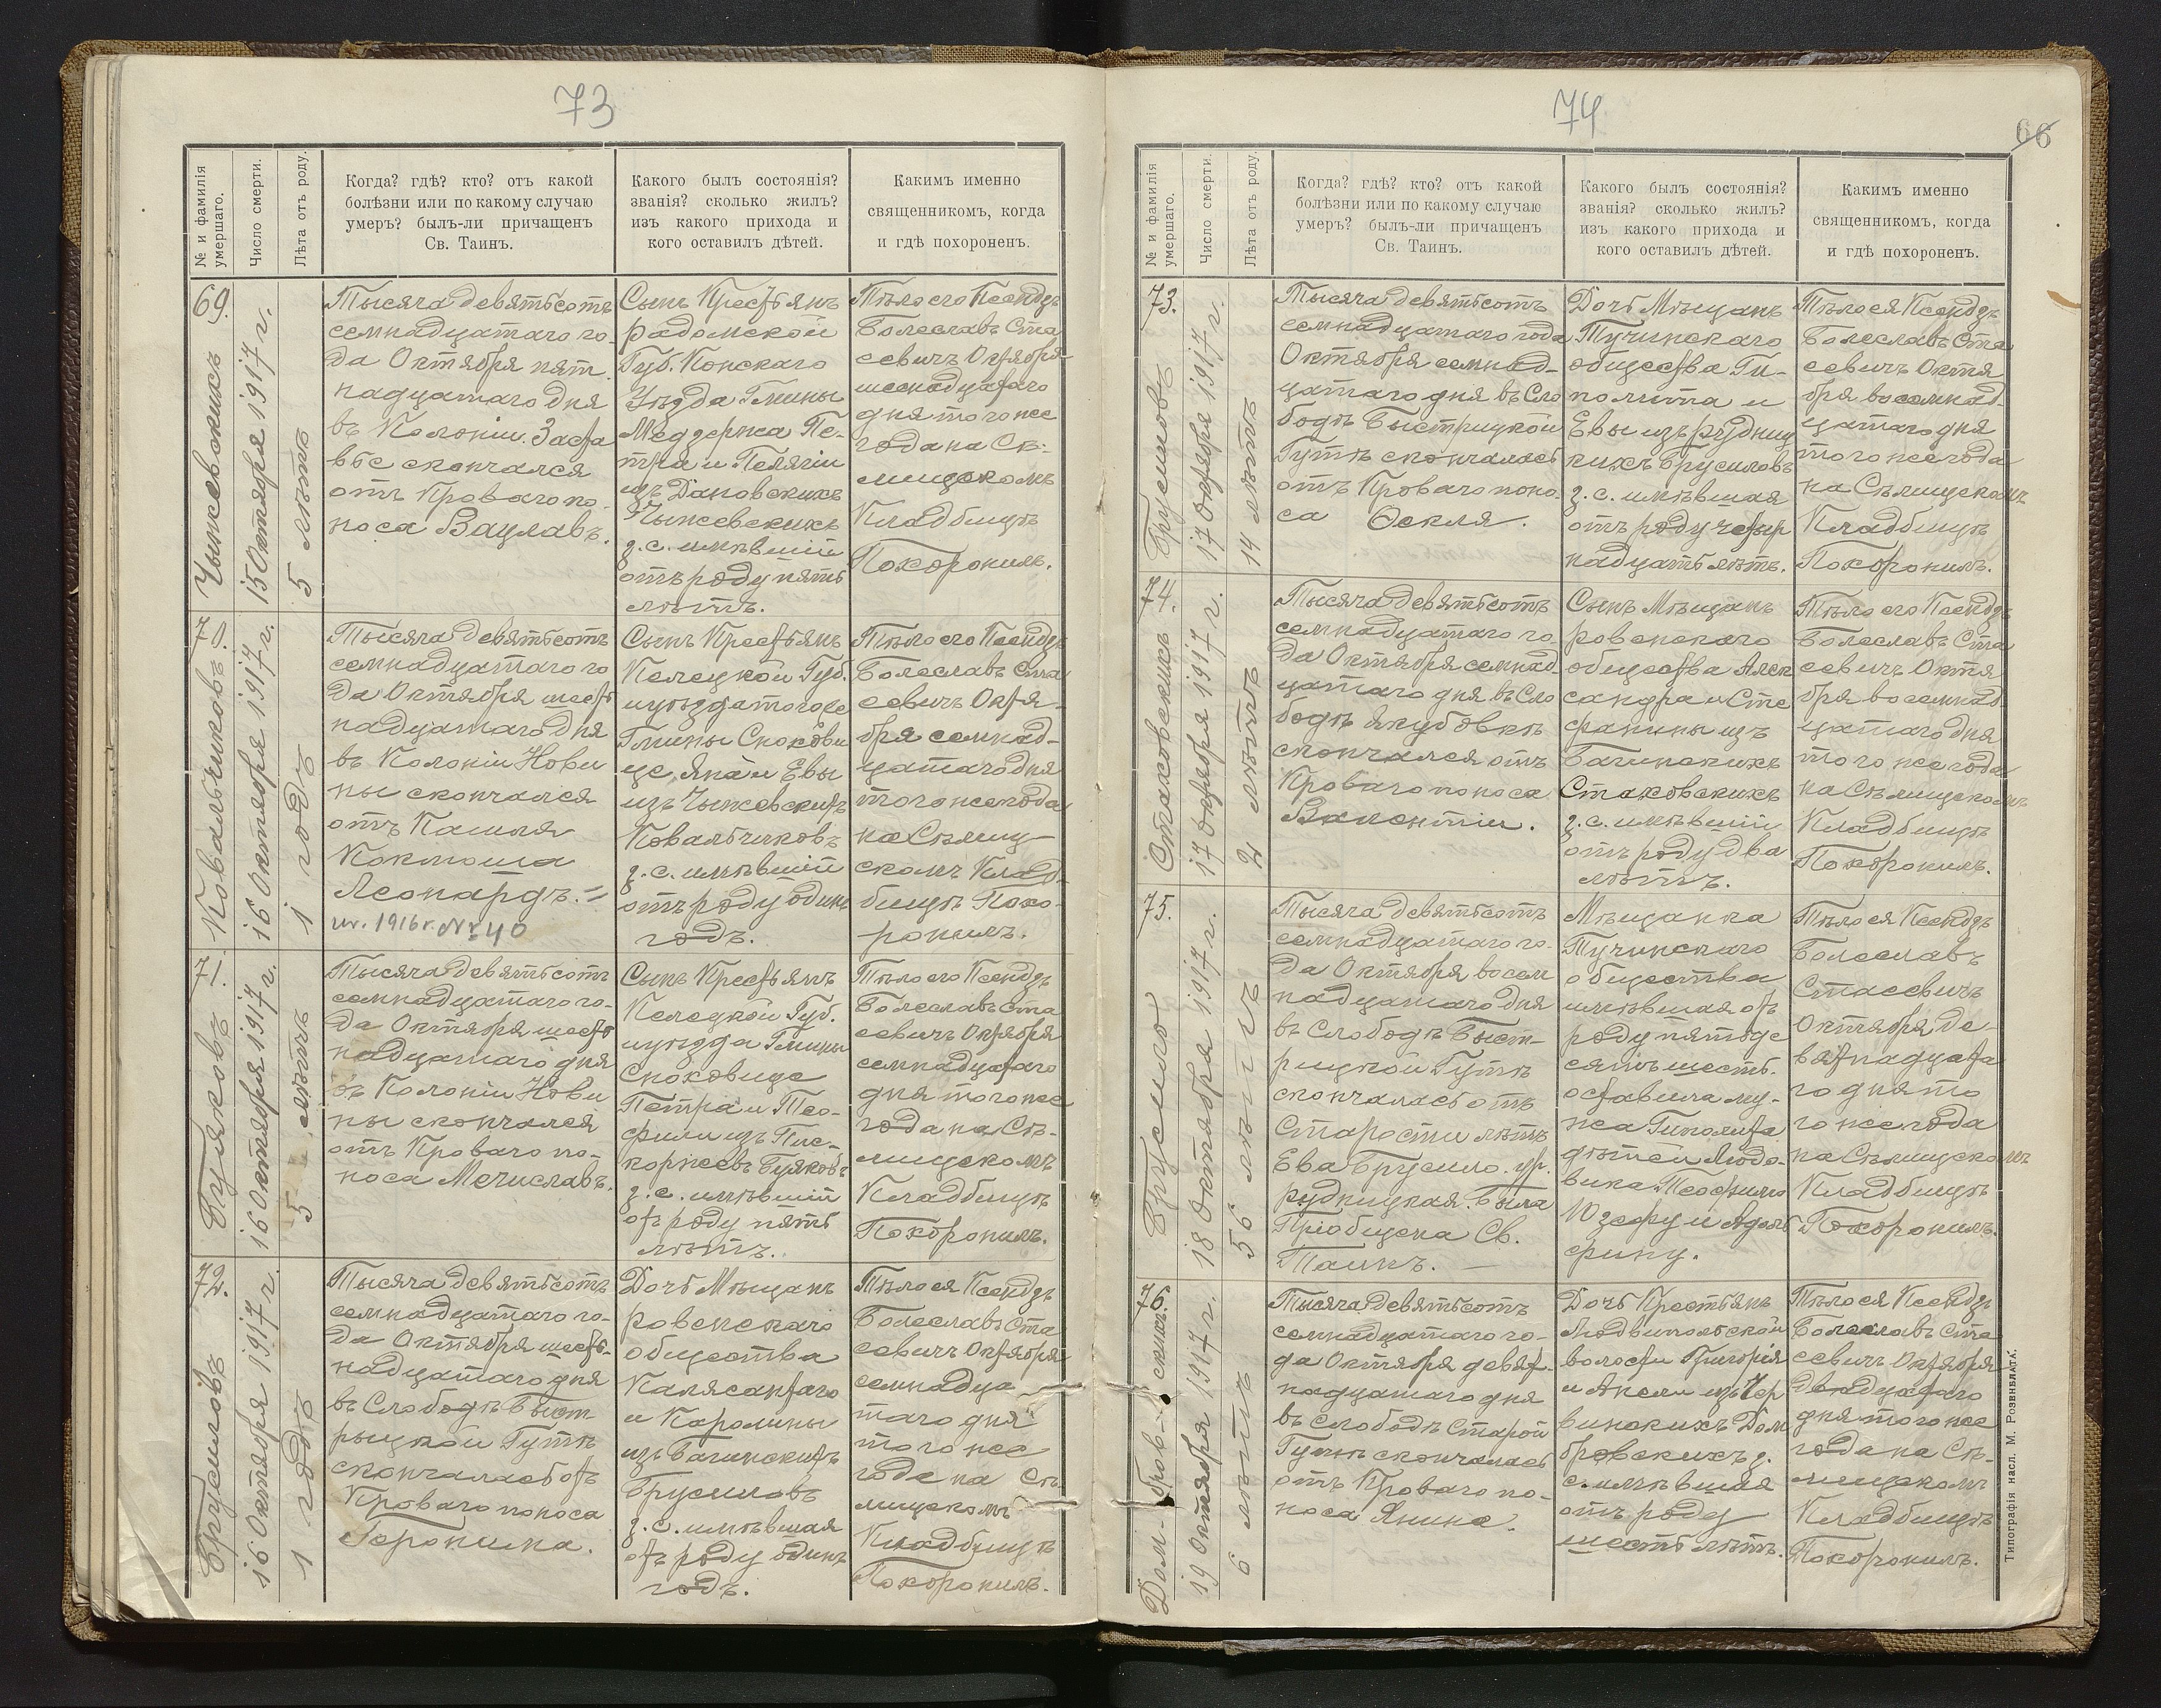 73
№ и фамилія
умершаго.
Число смерти.
Лѣта отъ роду.
Когда? гдѣ? кто? отъ какой
болѣзни или по какому случаю
умеръ? былъ-ли причащенъ
Св. Таинъ.
Какого былъ состоянія?
званія? сколько жилъ?
изъ какого прихода и
кого оставилъ дѣтей.
Какимъ именно
священникомъ, когда
и гдѣ похороненъ.
69.
Чыжевскихъ
15 Октября 1917 г.
5 лѣтъ
Тысяча девятьсотъ
семнадцатаго го-
да Октября пят-
надцатаго дня
въ Колоніи Заста
вье скончался
отъ Кроваго по-
носа Вацлавъ.
Сынъ Крестьянъ
Радомской
Губ. Конскаго
Уѣзда Гмины
Медзержа Пе-
тра и Пелягіи
изъ Дановскихъ
Чыжевскихъ
з. с. имѣвшій
отъ роду пять
лѣтъ.
Тѣло его Ксендзъ
Болеславъ Ста
севичъ Октября
шеснадцатаго
дня того же
года на Сѣ-
лищскомъ
Кладбищѣ
Похоронилъ.
70.
Ковальчиковъ
16 Октября 1917 г.
1 годъ
Тысяча девятьсотъ
семнадцатаго го
да Октября шест
надцатаго дня
въ Колоніи Нови
ны скончался
отъ Кашля
Коклюша
Леонардъ. =
ur. 1916 r. № 40
Сынъ Крестьянъ
Келецкой Губ.
и уѣзда того же
Гмины Снохови
це, Яна и Евы
изъ Чыжевскихъ
Ковальчиковъ
з. с. имѣвшій
отъ роду одинъ
годъ.
Тѣло его Ксендзъ
Болеславъ Ста
севичъ Октя-
бря семнад-
цатаго дня
того же года
на Сѣлищ-
скомъ Клад-
бищѣ Похо-
ронилъ.
71.
Буяковъ
16 Октября 1917 г.
5 лѣтъ
Тысяча девятьсотъ
семнадцатаго го-
да Октября шест
надцатаго дня
въ Колоніи Нови
ны скончался
отъ Кроваго по-
носа Мечиславъ.
Сынъ Крестьянъ
Келецкой Губ.
и уѣзда Гмины
Снохoвице
Петра и Тео-
фили изъ Пис-
коржевъ Буяковъ
з. с. имѣвшій
отъ роду пять
лѣтъ.
Тѣло его Ксендзъ
Болеславъ Ста
севичъ Октября
семнадцатаго
дня того же
года на Сѣ-
лищскомъ
Кладбищѣ
Похоронилъ.
72.
Брусиловъ
16 Октября 1917 г.
1 годъ
Тысяча девятьсотъ
семнадцатаго го-
да Октября шест-
надцатаго дня
въ Слободѣ Быст
рыцкой Гутѣ
скончалась отъ
Кроваго поноса
Геронима.
Дочь Мѣщанъ
Ровенскаго
общества
Калясантаго
и Каролины
изъ Багинскихъ
Брусиловъ
з. с. имѣвшая
отъ роду одинъ
годъ.
Тѣло ея Ксендзъ
Болеславъ Ста
севичъ Октября
семнадца
таго дня
того же
года на Сѣ
лищскомъ
Кладбищѣ
Похоронилъ.
74
66
№ и фамилія
умершаго.
Число смерти.
Лѣта отъ роду.
Когда? гдѣ? кто? отъ какой
болѣзни или по какому случаю
умеръ? былъ-ли причащенъ
Св. Таинъ.
Какого былъ состоянія?
званія? сколько жилъ?
изъ какого прихода и
кого оставилъ дѣтей.
Какимъ именно
священникомъ, когда
и гдѣ похороненъ.
73.
Брусиловъ
17 Октября 1917 г.
14 лѣтъ
Тысяча девятьсотъ
семнадцатаго года
Октября семнад-
цатаго дня въ Сло
бодѣ Быстрицкой
Гутѣ скончалась
отъ Кроваго поно-
са
Дочь Мѣщанъ
Тучинскаго
общества Ги-
полита и
Евы изъ Рудниц
кихъ Брусиловъ
з. с. имѣвшая
отъ роду четыр
надцать лѣтъ.
Тѣло ея Ксендзъ
Болеславъ Ста
севичъ Октя
бря восемнад-
цатаго дня
того же года
на Сѣлищскомъ
Кладбищѣ
Похоронилъ.
74.
Стаховскихъ
17 Октября 1917 г.
2 лѣтъ
Тысяча девятьсотъ
семнадцатаго го
да Октября семнад
цатаго дня въ Сло
бодѣ Якубовкѣ
скончался отъ
Кроваго поноса
Валентій.
Сынъ Мѣщанъ
Ровенскаго
общества Алек
сандра и Сте
фанины изъ
Багинскихъ
Стаховскихъ
з. с. имѣвшій
отъ роду два
лѣтъ.
Тѣло его Ксендзъ
Болеславъ Ста
севичъ Октя
бря восемнад-
цатаго дня
того же года
на Сѣлищскомъ
Кладбищѣ
Похоронилъ.
75.
Брусило
18 Октября 1917 г.
56 лѣтъ
Тысяча девятьсотъ
семнадцатаго го-
да Октября восем
надцатаго дня
въ Слободѣ Быст-
рицкой Гутѣ
скончалась отъ
Старости лѣтъ
Ева Брусило. ур.
Рудницкая. Была
Пріобщена Св.
Таинъ. —
Мѣщанка
Тучинскаго
общества
имѣвшая отъ
роду пятьде
сятъ шесть.
оставила му-
жа Гиполита
дѣтей Людо-
вика, Теофилю
Юзефу и Адоль
фину.
Тѣло ея Ксендзъ
Болеславъ
Стасевичъ
Октября де-
вятнадцата
го дня то
го же года
на Сѣлищскомъ
Кладбищѣ
Похоронилъ.
76.
Дом-бров-скихъ
19 Октября 1917 г.
6 лѣтъ
Тысяча девятьсотъ
семнадцатаго го-
да Октября девят-
надцатаго дня
въ слободѣ Старой
Гутѣ скончалась
отъ Кроваго по-
носа Янина.
Дочь Крестьянъ
Людвипольской
волости Григорія
и Анели изъ Чер
винскихъ Дом
бровскихъ з.
с. имѣвшая
отъ роду
шесть лѣтъ.
Тѣло ея Ксендзъ
Болеславъ Ста
севичъ Октября
двадцатаго
дня того же
года на Сѣ-
лищскомъ
Кладбищѣ
Похоронилъ.
Типографія насл. М. Розенблата.